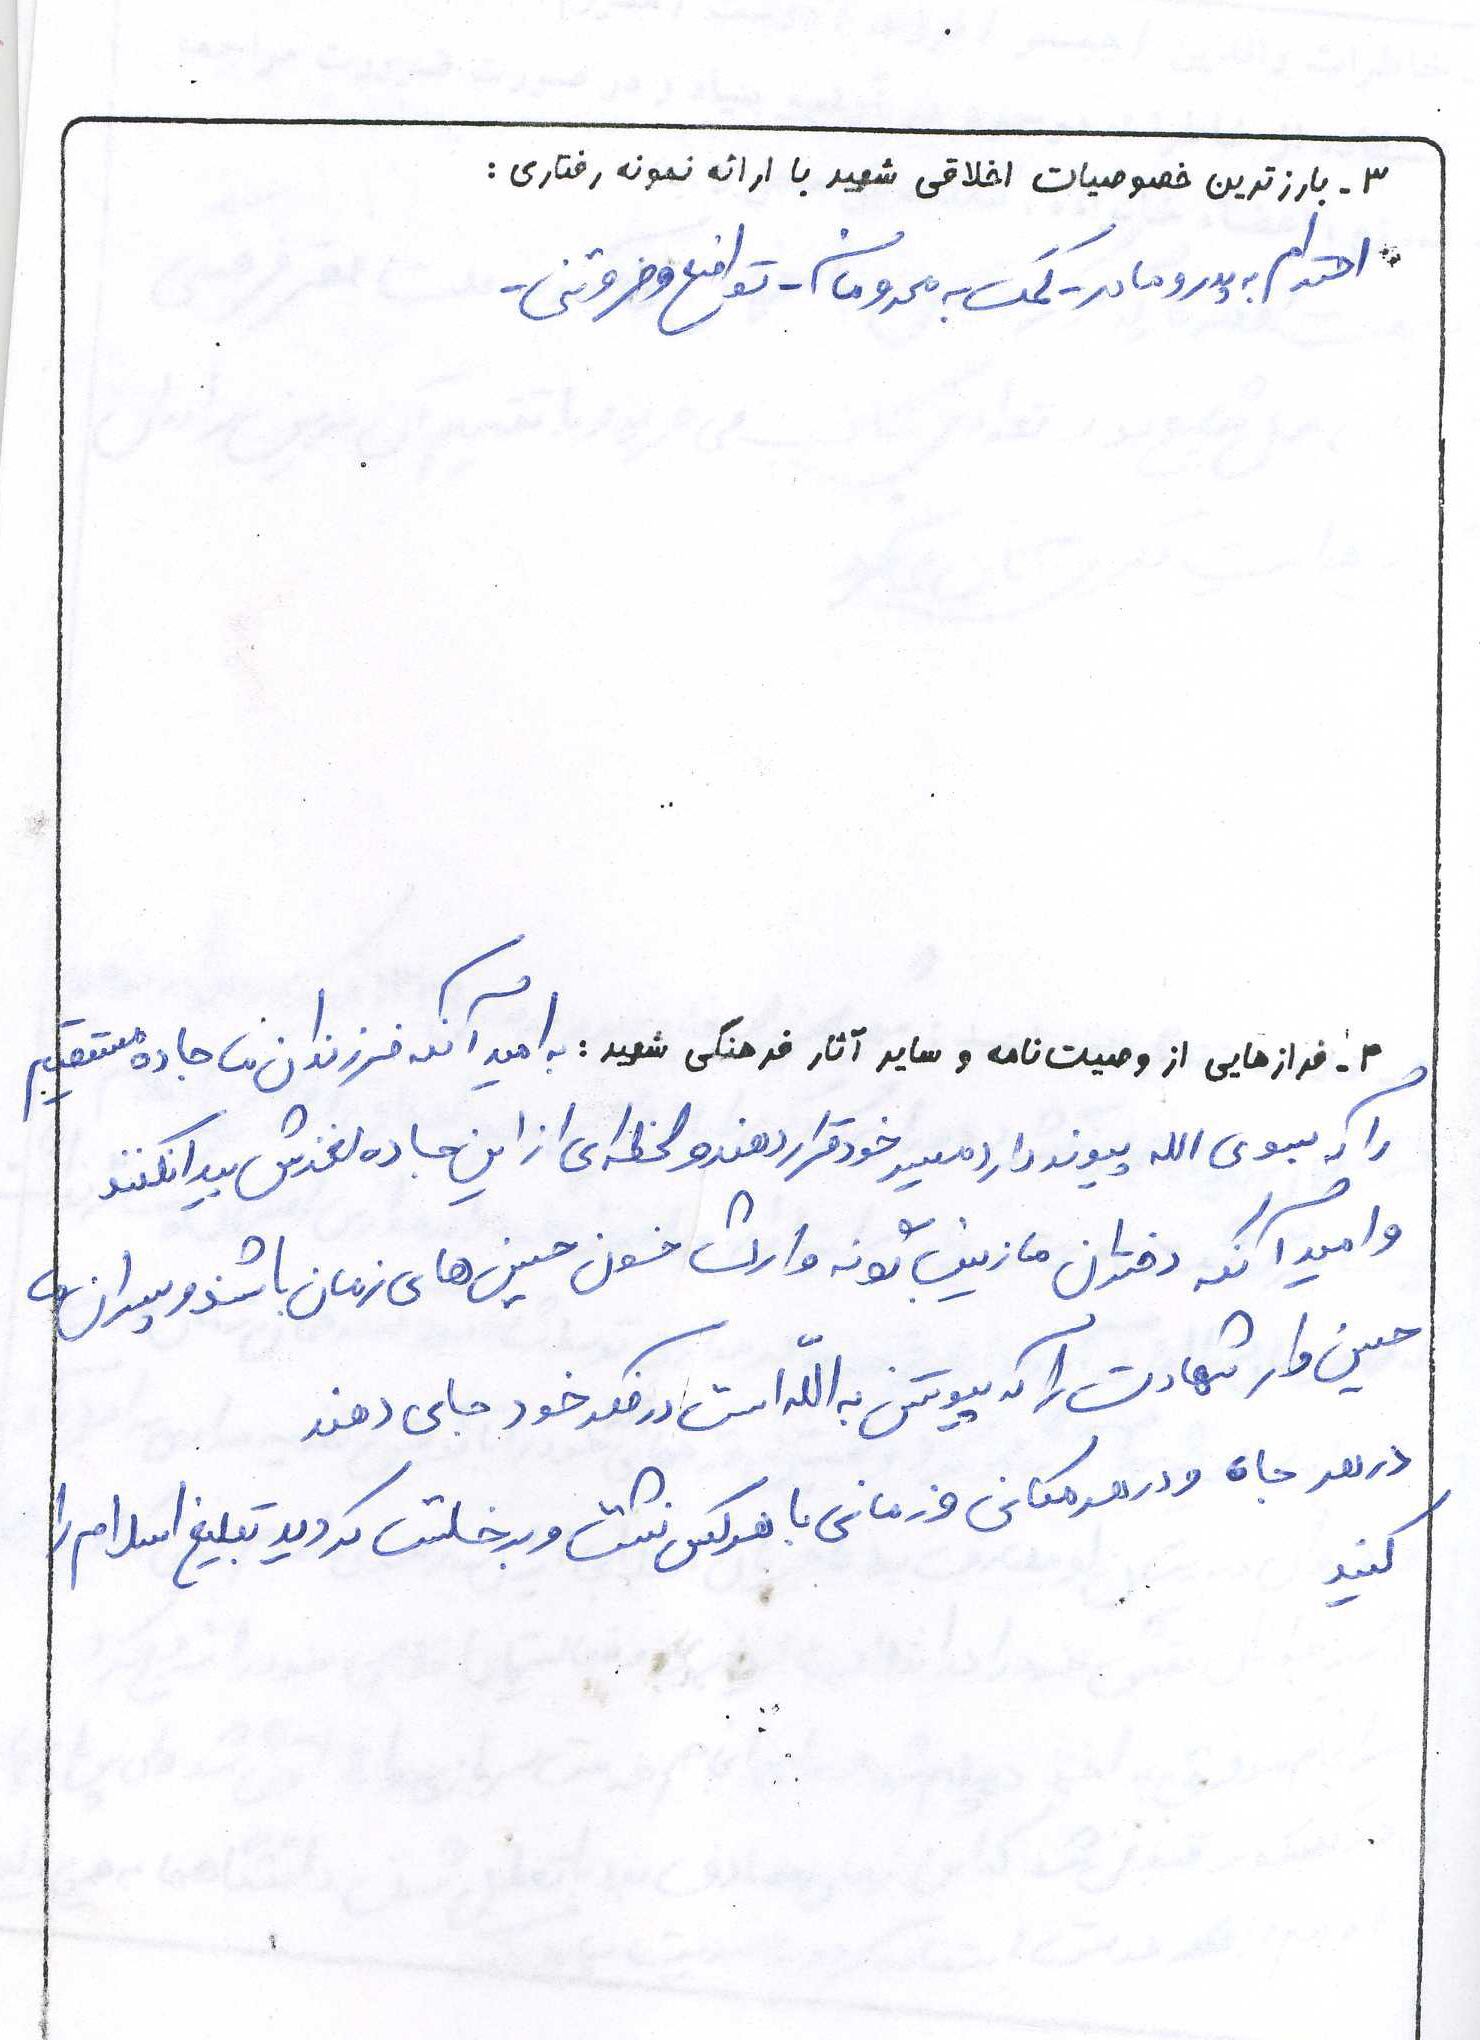 ۳- بارزترین خصوصیات اخلاقی شهید با ارائه نمونه رفتاری :
احترام به پدر و مادر - کمک به محرومان - تواضع و فروتنی -
۴- فرازهایی از وصیت‌نامه و سایر آثار فرهنگی شهید : به امید آنکه فرزندان ما جاده مستقیم
را که بسوی الله پیوند دارد مسیر خود قرار دهند و لحظه‌ای از این جاده لغزش پیدا نکنند
و امید آنکه دختران ما زینب گونه وارث خون حسین‌های زمان باشند و پسران ما
حسین وار شهادت را که پیوستن به الله است در فکر خود جای دهند
در هر جاه و در هر مکانی و زمانی با هر کس نشست و برخاست کردید تبلیغ اسلام را
کنید